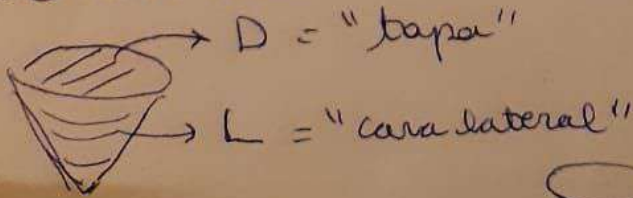 D = "tapa"
L = "cara lateral"